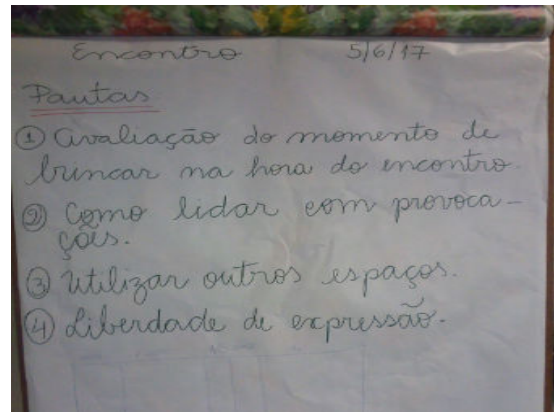 Encontro 5/6/17
Pautas
① Avaliação do momento de
brincar na hora do encontro.
② Como lidar com provoca-
ções.
③ Utilizar outros espaços.
④ Liberdade de expressão.